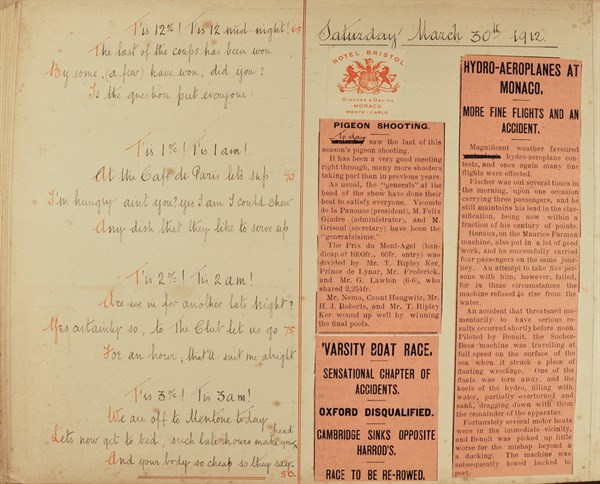 T'is 12%! T'is mid-night! 65
The last of the coups has been won
By some, (a few) have won, did you?
Is the question put everyone:
T'is 1%! T'is 1am!
At the Café de Paris let's sup 70
I'm hungry ain't you? yes I am I could chew
Any dish that they like to serve up
T'is 2%! T'is 2am!
Are we in for another late Night?
Yes certainly so, to the Club let us go 75
For an hour, that'll suit me alright
T'is 3%! T'is 3am!
We are off to Mentone today
Let's now get to bed, such late hours make your head
And your body so cheap so they say.
80.
Saturday March 30th 1912.
HOTEL BRISTOL
MONACO
MONTE-CARLO
PIGEON SHOOTING.
To-day saw the last of this
season's pigeon shooting.
It has been a very good meeting
right through, many more shooters
taking part than in previous years.
As usual, the "generals" at the
head of the show have done their
best to satisfy everyone. Vicomte
de la Panouse (president), M. Felix
Gindre (administrator), and M.
Grisoul (secretary) have been the
"generalissime."
The Prix du Mont-Agel (han-
dicap of 1000fr., 60fr. entry) was
divided by Mr. T. Ripley Ker,
Prince de Lynar, Mr. Frederick,
and Mr. G. Lawton (6-6), who
shared 2,254fr.
Mr. Nemo, Count Haugwitz, Mr.
H. J. Roberts, and Mr. T. Ripley
Ker wound up well by winning
the final pools.
'VARSITY BOAT RACE.
SENSATIONAL CHAPTER OF
ACCIDENTS.
OXFORD DISQUALIFIED.
CAMBRIDGE SINKS OPPOSITE
HARROD'S.
RACE TO BE RE-ROWED.
HYDRO-AEROPLANES AT
MONACO.
MORE FINE FLIGHTS AND AN
ACCIDENT.
Magnificent weather favoured
hydro-aeroplane con-
tests, and once again many fine
flights were effected.
Fischer was out several times in
the morning, upon one occasion
carrying three passengers, and he
still maintains his lead in the clas-
sification, being now within a
fraction of his century of points.
Renaux, on the Maurice Farman
machine, also put in a lot of good
work, and he successfully carried
four passengers on the same jour-
ney. An attempt to take five per-
sons with him, however, failed,
for in those circumstances the
machine refused to rise from the
water.
An accident that threatened mo-
mentarily to have serious re-
sults occurred shortly before noon.
Piloted by Benoit, the Suchez-
Besa machine was travelling at
full speed on the surface of the
sea when it struck a piece of
floating wreckage. One of the
floats was torn away, and the
keels of the hydro, filling with
water, partially overturned and
sank, dragging down with them
the remainder of the apparatus.
Fortunately several motor boats
were in the immediate vicinity,
and Benoit was picked up little
worse for the mishap beyond a
a ducking. The machine was
subsequently towed backed to
port.